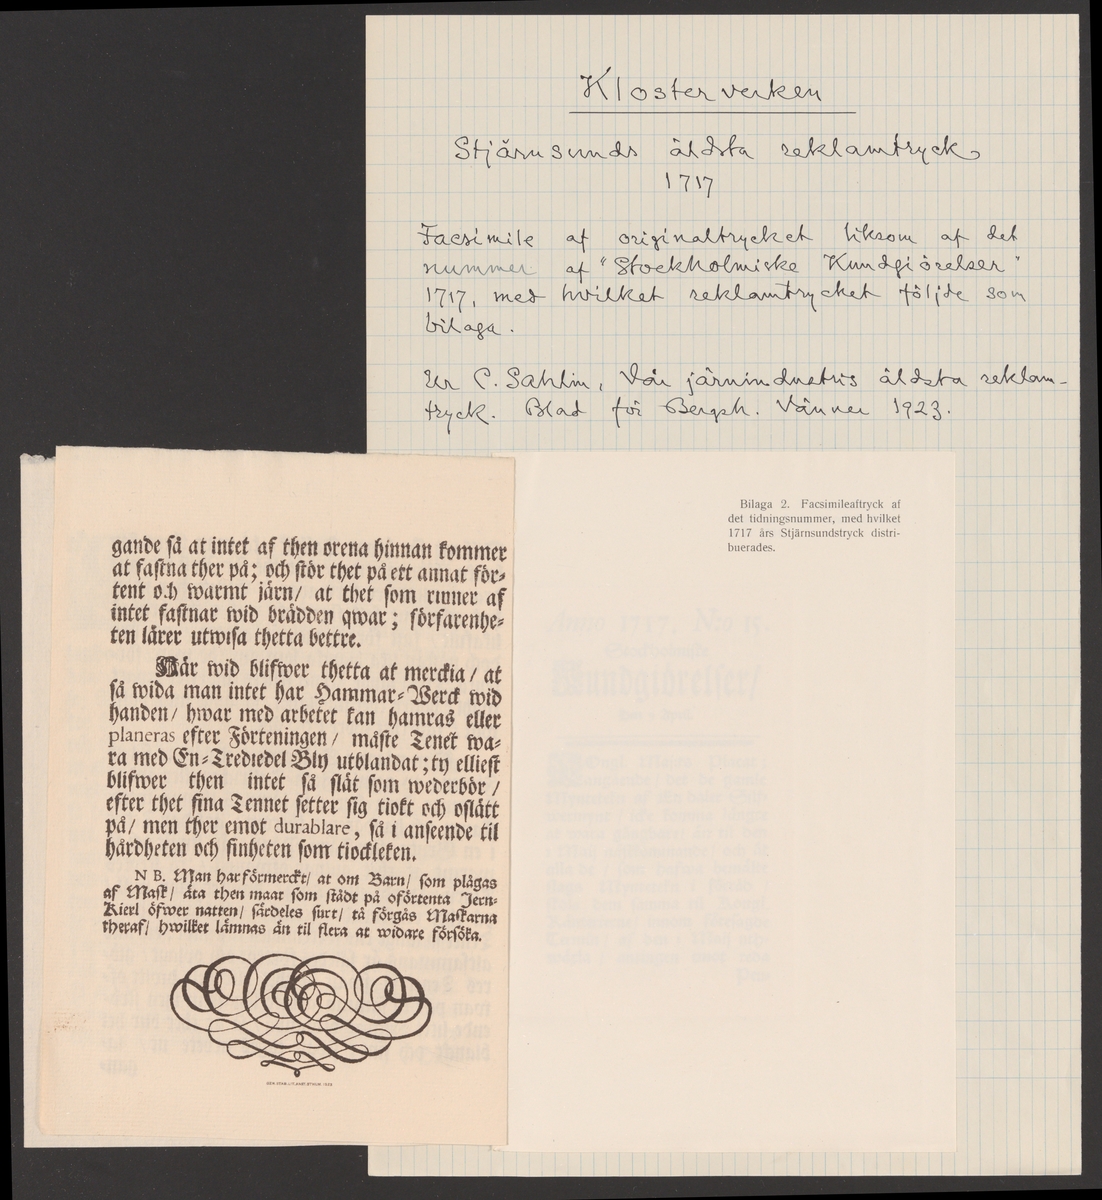 Klosterverken
Stjärnsunds äldsta reklamtryck
1717
Facsimile af originaltrycket liksom af det
nummer af "Stockholmiske Kundgiörelser"
1717, med hvilket reklamtrycket följde som
bilaga.
Ur C. Sahlin, Vår järnindustris äldsta reklam-
tryck. Blad för Bergsh. Vänner 1923.
Bilaga 2. Facsimileaftryck af
det tidningsnummer, med hvilket
1717 års Stjärnsundstryck distri-
buerades.
gande så at intet af then orena hinnan kommer
at fastna ther på; och stör thet på ett annat för-
tent och warmt järn/ at thet som rinner af
intet fastnar wid brädden qwar; förfarenhe-
ten lärer utwisa thetta bettre.
Här wid blifwer thetta at merckia/ at
så wida man intet har Hammar-Werck wid
handen/ hwar med arbetet kan hamras eller
planeras efter Förteningen/ måste Tenet wa-
ra med En-Trediedel Bly utblandat; ty elliest
blifwer then intet så slät som wederbör/
efter thet fina Tennet setter sig tiokt och oslätt
på/ men ther emot durablare, så i anseende til
hårdheten och finheten som tiockleken.
NB. Man har förmerckt/ at om Barn/ som plågas
af Mask/ äta then maat som stådt på oförtenta Jern-
Kierl öfwer natten/ särdeles surt/ tå förgås Maskarna
theraf/ hwilket lämnas än til flera at widare försöka.
Anno 1717. Nro 15.
Kundgiörelser/